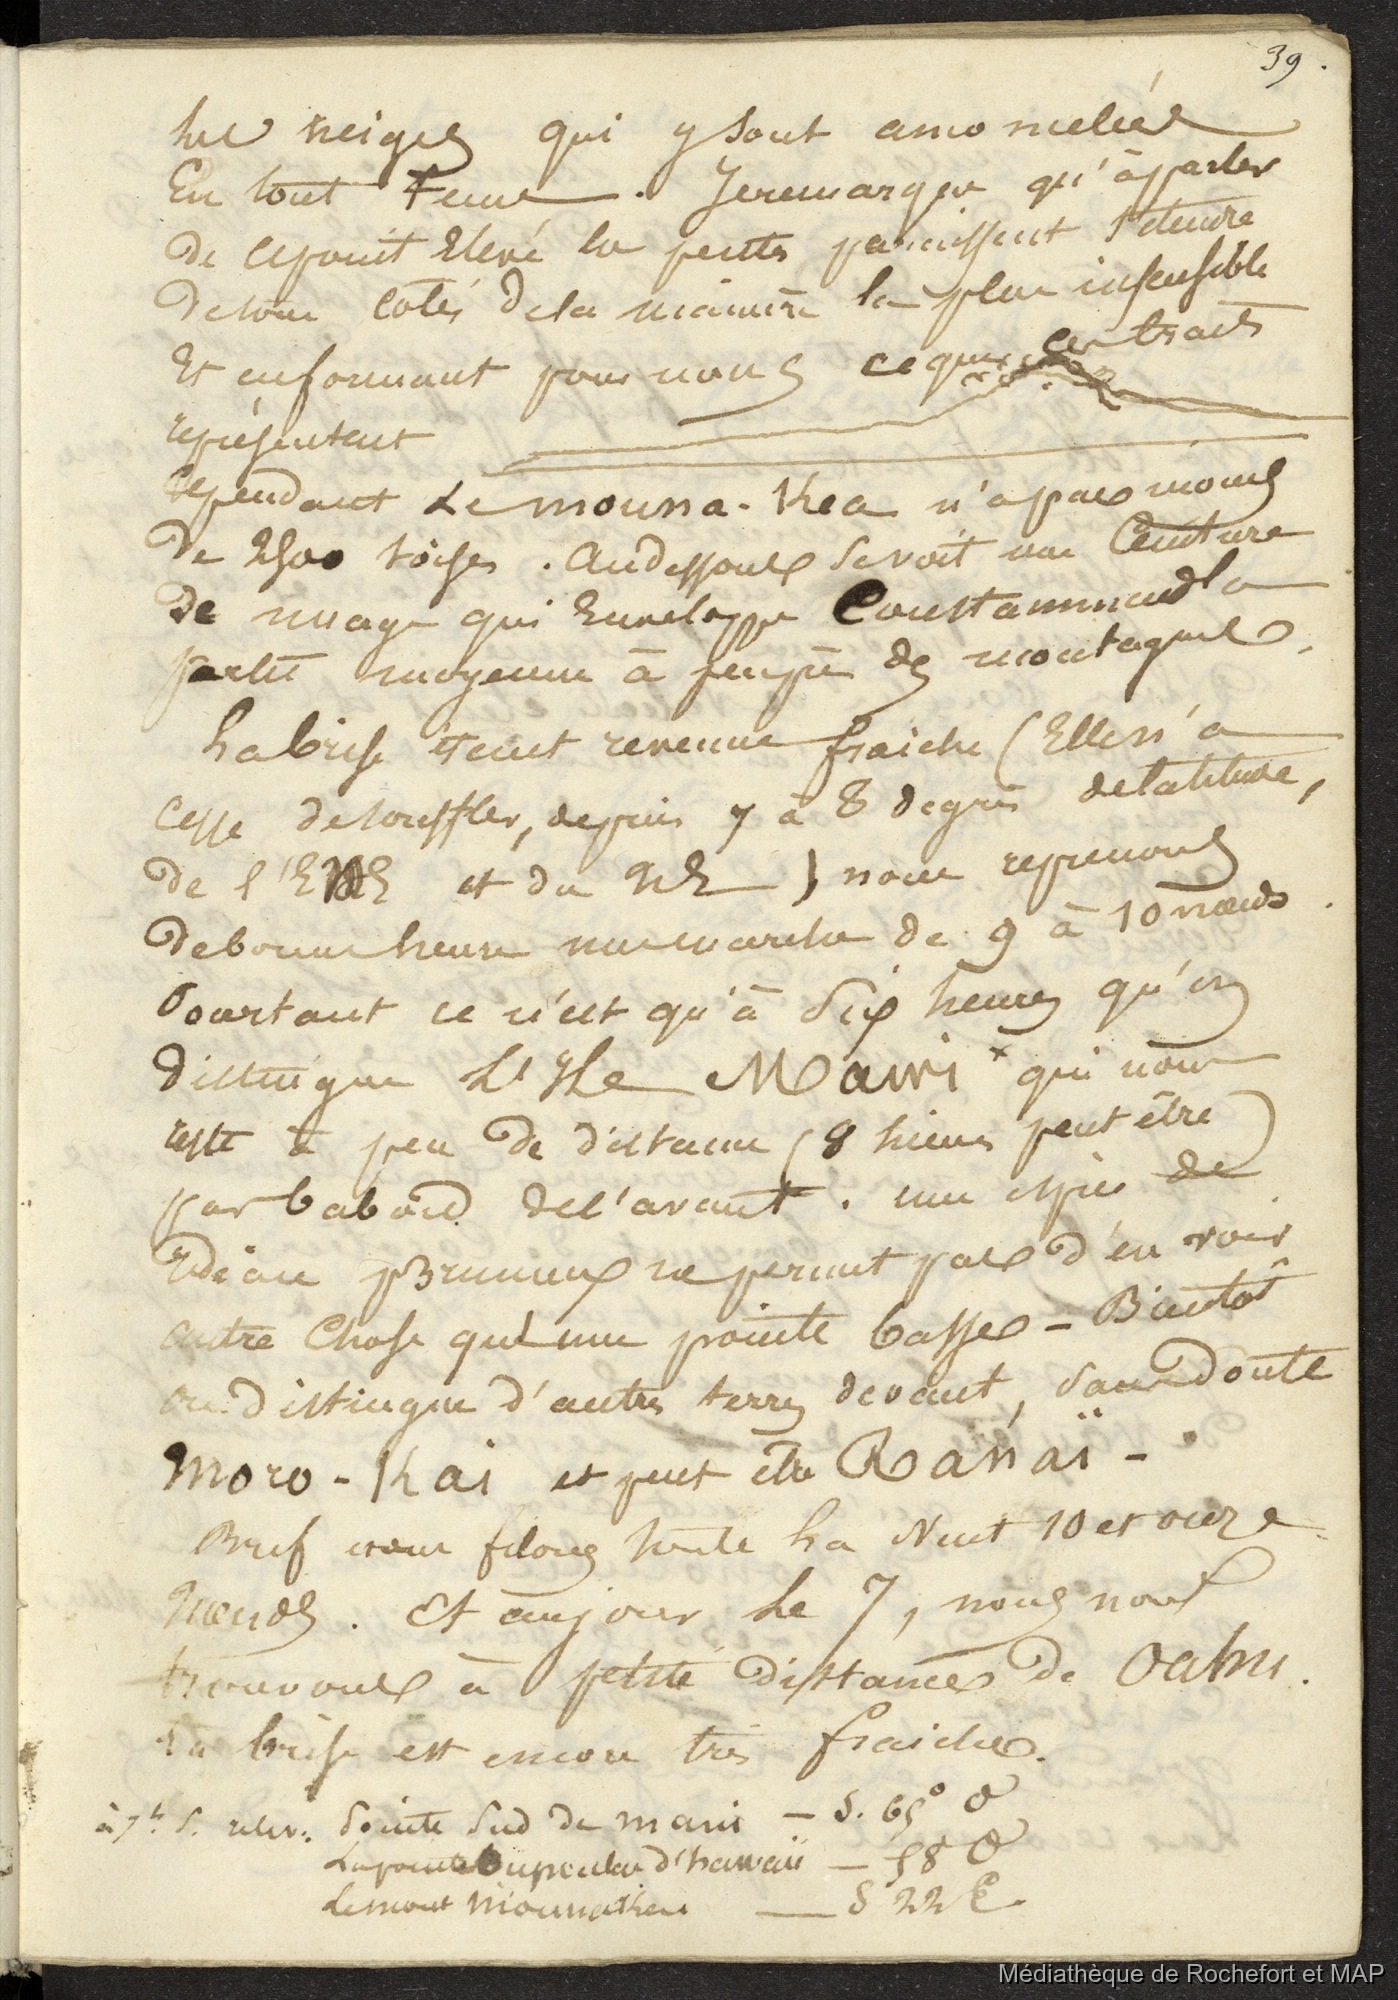 39.
les neiges qui y sont amoncelées
En tout tems. Je remarque qu'à partir
de ce point Elevé les pentes paroissent s'étendre
de tous cotés de la maniere la plus insensible
Et en formant pour nous ce que ces traits
représentent
Cependant Le mouna-Kea n'a pas moins
de 2500 toises. Au dessous se voit une Ceinture
de nuage qui Enveloppe Constamment la
partie moyenne à peu près des montagnes.
La brise étant revenue fraiche (Elle n'a
cessé de souffler, depuis 7 à 8 degrés de latitude,
de l'ENE et du NE) nous reprenons
de bonne heure une marche de 9 à 10 nœuds.
Pourtant ce n'est qu'à Six heures qu'on
distingue L'Ile Mawi x qui nous
reste à peu de distance (8 lieues peut être)
par babord de l'avant. une espece de
rideau brumeux ne permet pas d'en voir
autre Chose qu'une pointe basse - Bientôt
on distingue d'autres terres devant, sans doute
Moro-Kai et peut être Ranai -
Bref nous filons toute La Nuit 10 et onze
Nœuds. Et au jour Le 7, nous nous
trouvons à petite distance de Oahu.
La brise est encore très fraiche.
à 7h. S. relev.: Pointe Sud de mawi - S. 65° O
La pointe Oupoulou d'hawaii - 58 O
Le mont Mouna Kea - S 22 E.
Médiathèque de Rochefort et MAP